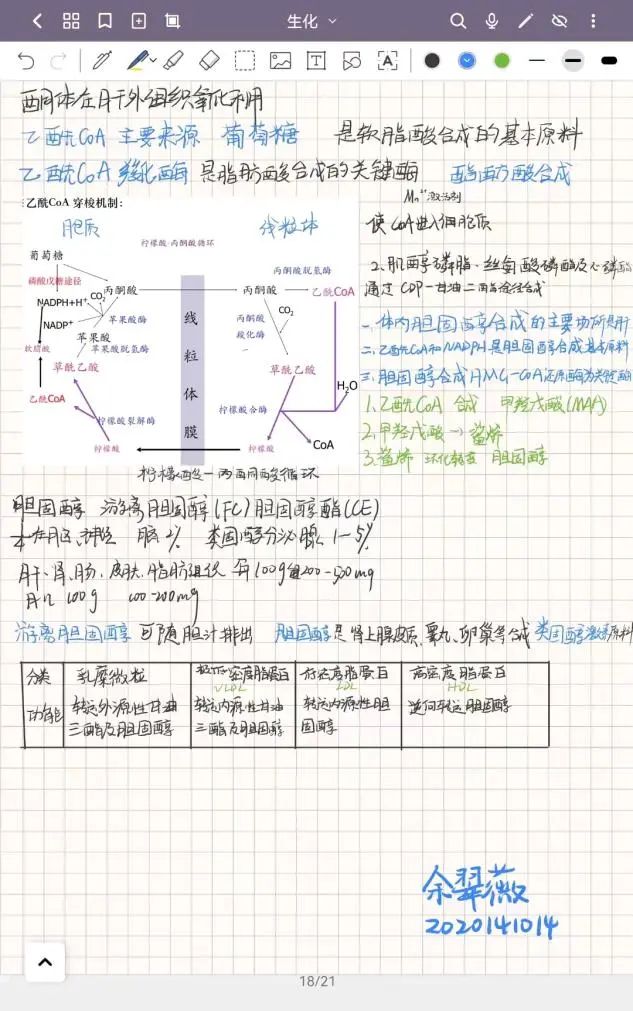 生化
酮体在肝外组织氧化利用
乙酰CoA 主要来源 葡萄糖 是软脂酸合成的基本原料
乙酰CoA 羧化酶 是脂肪酸合成的关键酶
Mn²⁺激活剂
乙酰CoA 穿梭机制:
胞质
线粒体
柠檬酸-丙酮酸循环
葡萄糖
磷酸戊糖途径
NADPH+H⁺
CO₂
丙酮酸
丙酮酸
丙酮酸脱氢酶
乙酰CoA
NADP⁺
苹果酸酶
苹果酸
苹果酸脱氢酶
软脂酸
草酰乙酸
乙酰CoA
柠檬酸裂解酶
柠檬酸
线粒体膜
CO₂
丙酮酸
羧化酶
草酰乙酸
H₂O
柠檬酸合酶
CoA
柠檬酸
柠檬酸-丙酮酸循环
使CoA进入细胞质
2、肌醇磷脂、丝氨酸磷酯及心磷酯
通过CDP-甘油二酯途径合成
一、体内胆固醇合成的主要场所是肝
二、乙酰CoA和NADPH是胆固醇合成基本原料
三、胆固醇合成HMG-CoA还原酶为关键酶
1.乙酰CoA 合成 甲羟戊酸(MVA)
2.甲羟戊酸→鲨烯
3.鲨烯 环化转变 胆固醇
胆固醇 游离胆固醇(FC)胆固醇酯(CE)
脑2% 类固醇分泌腺 1-5%
肝、肾、肠、皮肤、脂肪组织 每100g 200-500mg
肌肉 100g 100-200mg
游离胆固醇 可随胆汁排出 胆固醇是肾上腺皮质、睾丸、卵巢等合成 类固醇激素原料
分类 乳糜微粒 极低密度脂蛋白 VLDL 低密度脂蛋白 LDL 高密度脂蛋白 HDL
功能 转运外源性甘油三酯及胆固醇 转运内源性甘油三酯及胆固醇 转运内源性胆固醇 逆向转运胆固醇
余翠薇
2020141014
18/21